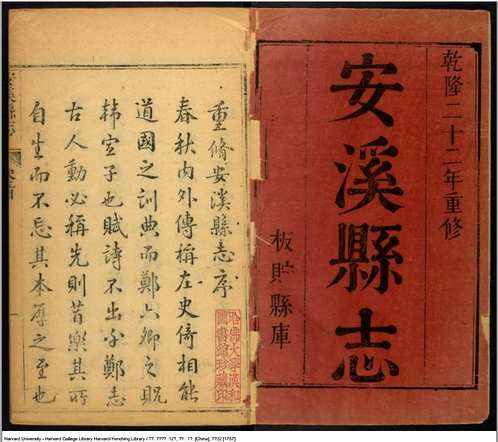 乾隆二十二年重修
安溪縣志
板貯縣庫
重脩安溪縣志序
春秋內外傳稱左史倚相能
道國之訓典而鄭六卿之貺
韩宣子也賦詩不出乎鄭志
古人動必稱先則昔樂其所
自生而不忘其本厚之至也
哈佛大學漢和
圖書館珍藏印
Harvard University - Harvard College Library Harvard-Yenching Library /